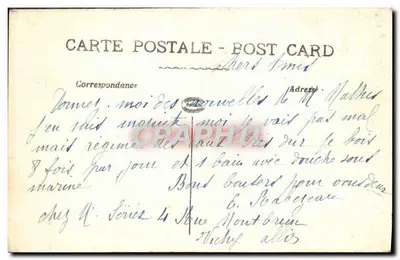 CARTE POSTALE - POST CARD
chers amis
Correspondance
Adresse
Donnez moi des nouvelles de M Mathis
j'en suis inquiet moi je vais pas mal
mais regime des eaux tres dur je bois
8 fois par jour et 1 bain avec douche sous
marine Bons baisers pour vous deux
chez M. 4 Rue Montbrun
Vichy allier